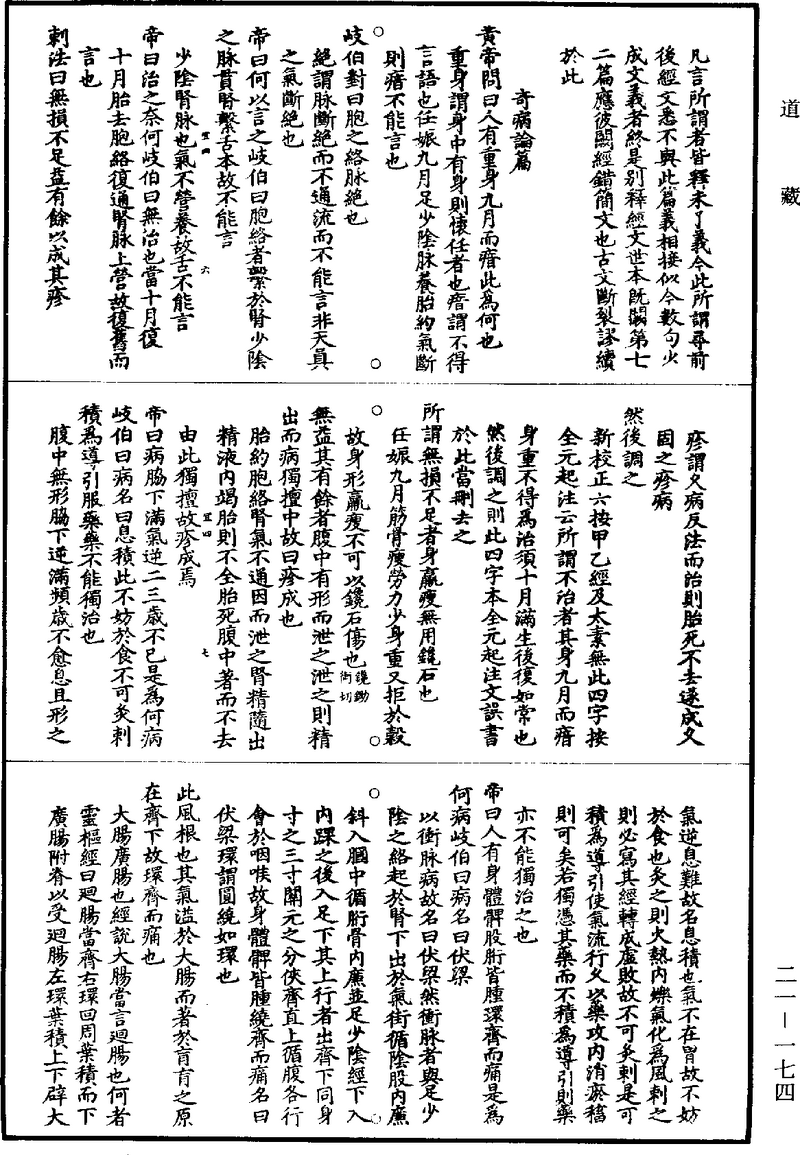 道藏
凡言所謂者皆釋未了義今此所謂尋前
後經文悉不與此篇義相接似今數句少
成文義者終是別釋經文世本既闕第七
二篇應彼闕經錯簡文也古文斷裂謬續
於此
奇病論篇
黃帝問曰人有重身九月而瘖此為何也
重身謂身中有身則懷任者也瘖謂不得
言語也任娠九月足少陰脉養胎約氣斷
則瘖不能言也
岐伯對曰胞之絡脉絕也
絕謂脉斷絕而不通流而不能言非天真
之氣斷絕也
帝曰何以言之岐伯曰胞絡者繫於腎少陰
之脉貫腎繫舌本故不能言
少陰腎脉也氣不營養故舌不能言
帝曰治之奈何岐伯曰無治也當十月復
十月胎去胞絡復通腎脉上營故復舊而
言也
刺法曰無損不足益有餘以成其疹
疹謂久病反法而治則胎死不去遂成久
固之疹病
然後調之
新校正云按甲乙經及太素無此四字按
全元起注云所謂不治者其身九月而瘖
身重不得為治須十月滿生後復如常也
然後調之則此四字本全元起注文誤書
於此當刪去之
所謂無損不足者身羸瘦無用鑱石也
任娠九月筋骨瘦勞力少身重又拒於穀
故身形羸瘦不可以鑱石傷也鑱鋤銜切
無益其有餘者腹中有形而泄之泄之則精
出而病獨擅中故曰疹成也
胎約胞絡腎氣不通因而泄之腎精隨出
精液內竭胎則不全胎死腹中著而不去
由此獨擅故疹成焉
帝曰病脇下滿氣逆二三歲不已是為何病
岐伯曰病名曰息積此不妨於食不可灸刺
積為導引服藥藥不能獨治也
腹中無形脇下逆滿頻歲不愈息且形之
氣逆息難故名息積也氣不在胃故不妨
於食也灸之則火熱內爍氣化為風刺之
則必寫其經轉成虛敗故不可灸刺是可
積為導引使氣流行久以藥攻內消瘀稸
則可矣若獨憑其藥而不積為導引則藥
亦不能獨治之也
帝曰人有身體髀股胻皆腫環齊而痛是為
何病岐伯曰病名曰伏梁
以衝脉病故名曰伏梁然衝脉者與足少
陰之絡起於腎下出於氣街循陰股內廉
斜入膕中循胻骨內廉並足少陰經下入
內踝之後入足下其上行者出齊下同身
寸之三寸關元之分俠齊直上循腹各行
會於咽喉故身體髀皆腫繞齊而痛名曰
伏梁環謂圓繞如環也
此風根也其氣溢於大腸而著於肓肓之原
在齊下故環齊而痛也
大腸廣腸也經說大腸當言迴腸也何者
靈樞經曰迴腸當齊右環回周葉積而下
廣腸附脊以受迴腸左環葉積上下辟大
二一—一七四